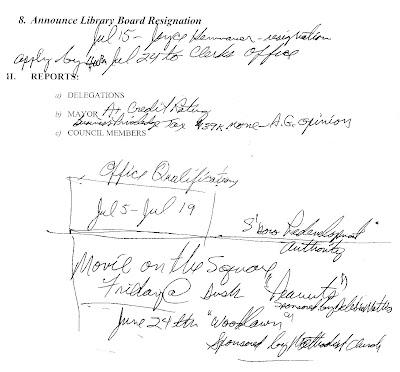 8. Announce Library Board Resignation
Jul 15 - Joyce Hemmaner - resignation
apply by Jul 24 to Clerks Office
II. REPORTS:
a) DELEGATIONS
b) MAYOR A+ Credit Rating
Business Priviledge Tax $39K more - A.G. opinion
c) COUNCIL MEMBERS
Office Qualification
Jul 5 - Jul 19
S'boro Redevelopment
Authority
Movie on the Square
Friday @ Dusk "Peanuts"
sponsored by
June 24th "Woodlawn"
Sponsored by Methodist Church